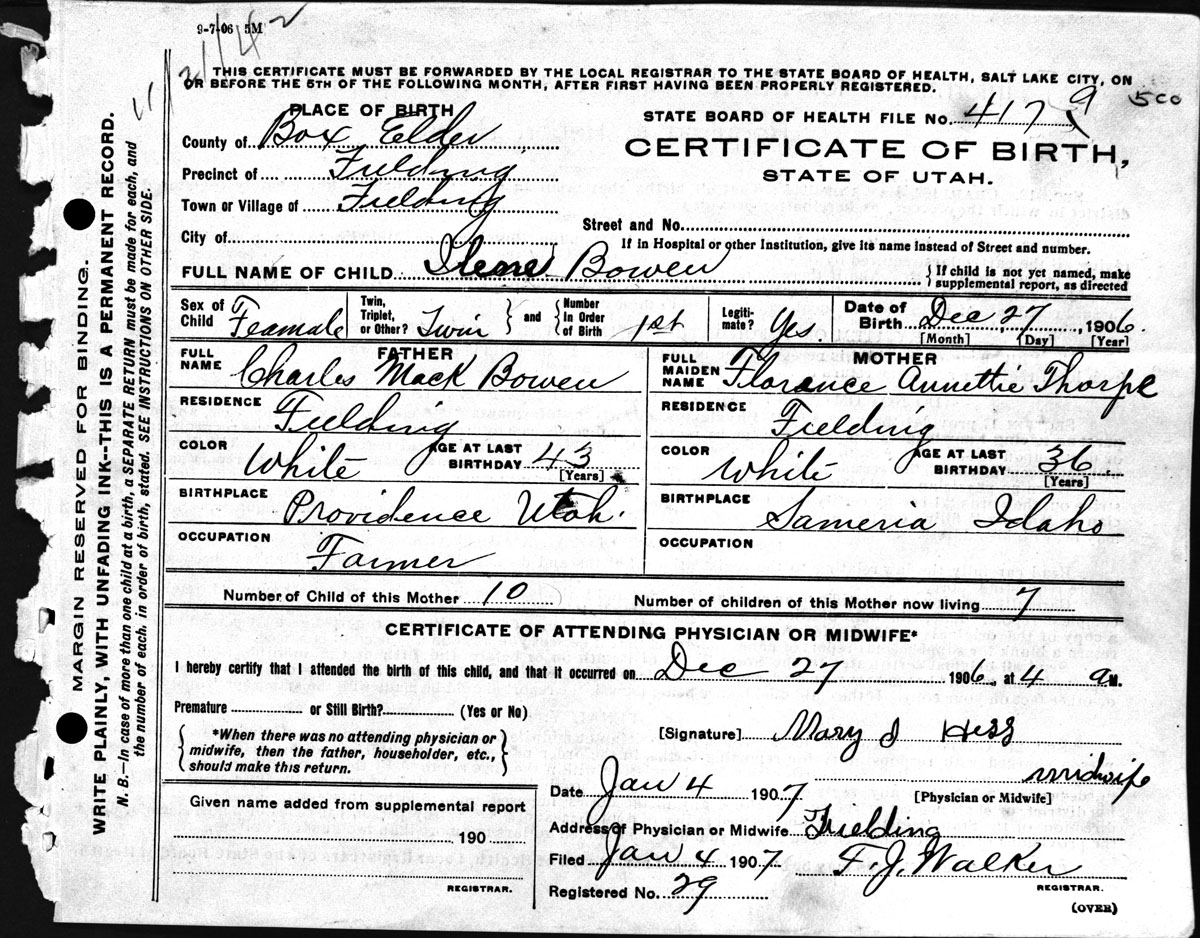 9-7-06 5M
THIS CERTIFICATE MUST BE FORWARDED BY THE LOCAL REGISTRAR TO THE STATE BOARD OF HEALTH, SALT LAKE CITY, ON
OR BEFORE THE 5TH OF THE FOLLOWING MONTH, AFTER FIRST HAVING BEEN PROPERLY REGISTERED.
STATE BOARD OF HEALTH FILE No. 4179 500
CERTIFICATE OF BIRTH,
STATE OF UTAH.
PLACE OF BIRTH
County of Box Elder
Precinct of Fielding
Town or Village of Fielding
City of
Street and No.
If in Hospital or other Institution, give its name instead of Street and number.
FULL NAME OF CHILD Ilene Bowen
{If child is not yet named, make
supplemental report, as directed
Sex of Child Feamale
Twin, Triplet, or Other? Twin
and
Number In Order of Birth 1st
Legiti-mate? Yes.
Date of Birth Dec 27, 1906.
[Month] (Day) [Year]
FATHER
FULL NAME Charles Mack Bowen
RESIDENCE Fielding
COLOR White
AGE AT LAST BIRTHDAY 43
[Years]
BIRTHPLACE Providence Utah.
OCCUPATION Farmer
MOTHER
FULL MAIDEN NAME Florance Annettie Thorpe
RESIDENCE Fielding
COLOR White
AGE AT LAST BIRTHDAY 36
[Years]
BIRTHPLACE Sameria Idaho
OCCUPATION
Number of Child of this Mother 10
Number of children of this Mother now living 7
CERTIFICATE OF ATTENDING PHYSICIAN OR MIDWIFE*
I hereby certify that I attended the birth of this child, and that it occurred on Dec 27 1906, at 4 a M.
Premature or Still Birth? (Yes or No)
*When there was no attending physician or
midwife, then the father, householder, etc.,
should make this return.
[Signature] Mary J Hess
midwife
[Physician or Midwife]
Date Jan 4 1907
Address of Physician or Midwife Fielding
Filed Jan 4 1907 F. J. Walker
REGISTRAR.
Registered No. 29
(OVER)
Given name added from supplemental report
190
REGISTRAR.
MARGIN RESERVED FOR BINDING.
WRITE PLAINLY, WITH UNFADING INK--THIS IS A PERMANENT RECORD.
N. B.—In case of more than one child at a birth, a SEPARATE RETURN must be made for each, and
the number of each, in order of birth, stated. SEE INSTRUCTIONS ON OTHER SIDE.